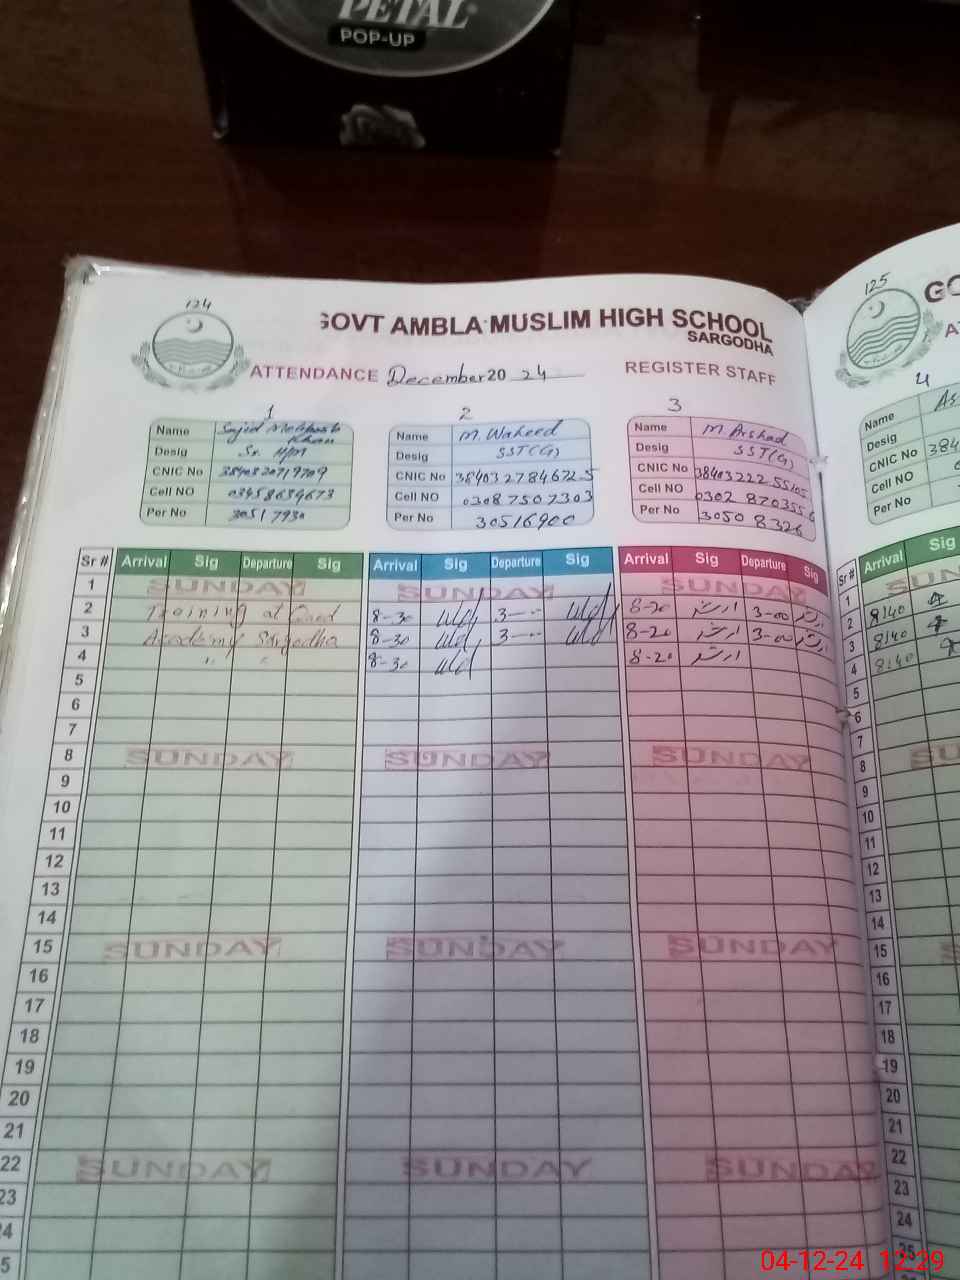 PETAL
POP-UP
124
GOVT AMBLA MUSLIM HIGH SCHOOL
SARGODHA
ATTENDANCE December 2024 REGISTER STAFF
1
Name Sajid Mehboob Khan
Desig Sr. H/M
CNIC No
Cell NO 03458639673
Per No 30517930
2
Name M. Waheed
Desig SST(G)
CNIC No 3840327846725
Cell NO 03087507303
Per No 30516900
3
Name M. Arshad
Desig SST(G)
CNIC No
Cell NO 0302 8703556
Per No 30508326
Sr # Arrival Sig Departure Sig Arrival Sig Departure Sig Arrival Sig Departure Sig
1 SUNDAY SUNDAY SUNDAY
2 Training at Qaed 8-30 3-- 8-20 ارشد 3-00 ارشد
3 Academy Sargodha 8-30 3-- 8-20 ارشد 3-00 ارشد
4 " " 8-30 8-20 ارشد
5
6
7
8 SUNDAY SUNDAY SUNDAY
9
10
11
12
13
14
15 SUNDAY SUNDAY SUNDAY
16
17
18
19
20
21
22 SUNDAY SUNDAY SUNDAY
23
24
25
125
GO
4
Name As
Desig
CNIC No 384
Cell NO
Per No
Sr # Arrival Sig
1 SUN
2 8:40
3 8:40
4 8:40
5
6
7
8 SU
9
10
11
12
13
14
15
16
17
18
19
20
21
22
23
24
25
04-12-24 12:29